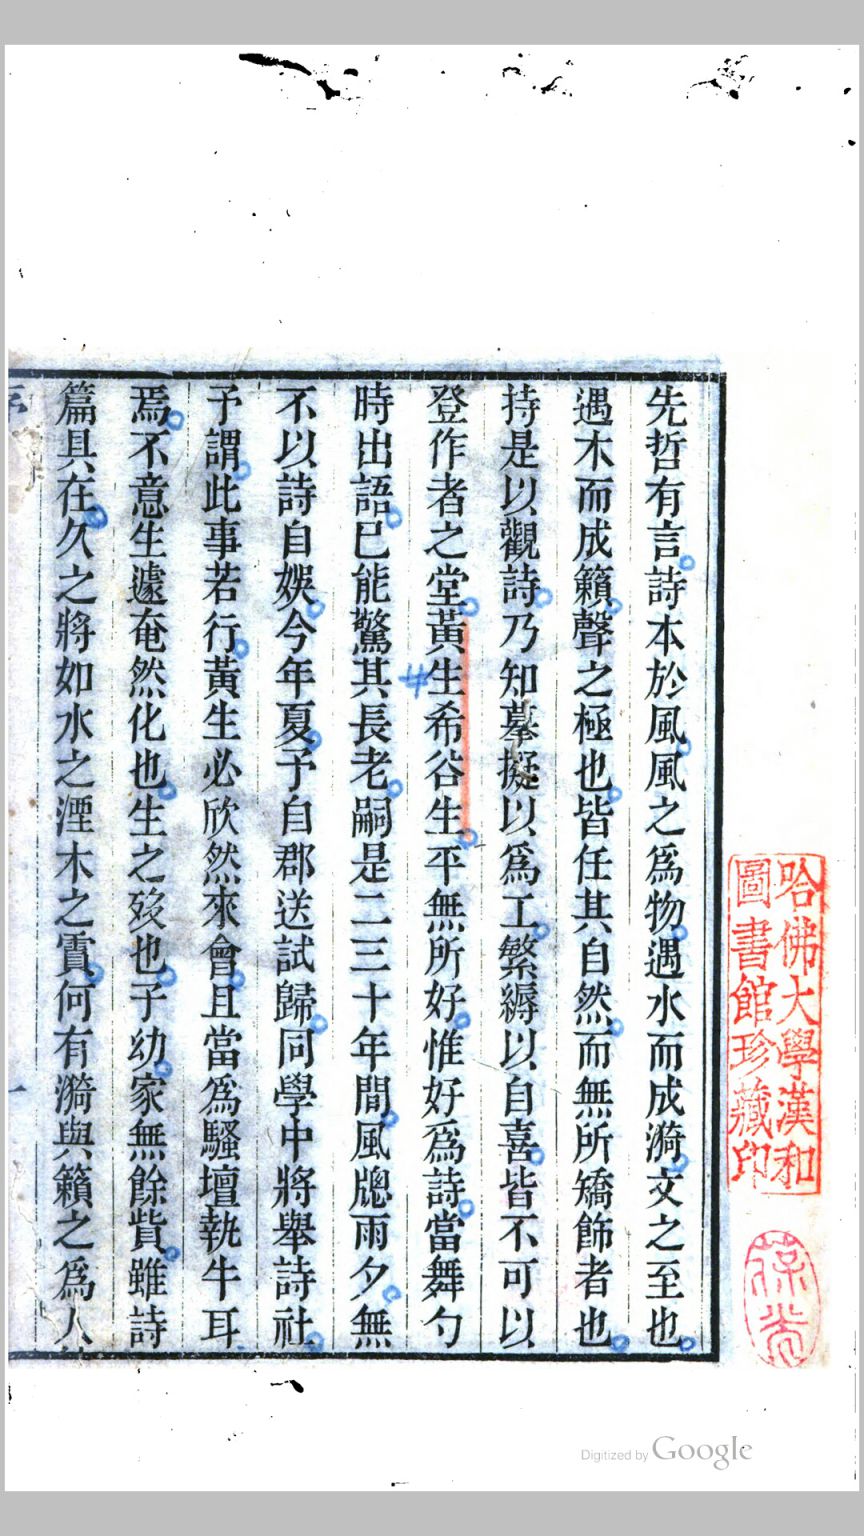 先哲有言詩本於風風之爲物遇水而成漪文之至也
遇木而成籟聲之極也皆任其自然而無所矯飾者也
持是以觀詩乃知摹擬以爲工繁縟以自喜皆不可以
登作者之堂黃生希谷生平無所好惟好爲詩當舞勺
時出語已能驚其長老嗣是二三十年間風牕雨夕無
不以詩自娛今年夏予自郡送試歸同學中將舉詩社
予謂此事若行黃生必欣然來會且當爲騷壇執牛耳
焉不意生遽奄然化也生之歿也子幼家無餘貲雖詩
篇具在久之將如水之湮木之實何有漪與籟之爲人
哈佛大學漢和
圖書館珍藏印
Digitized by Google